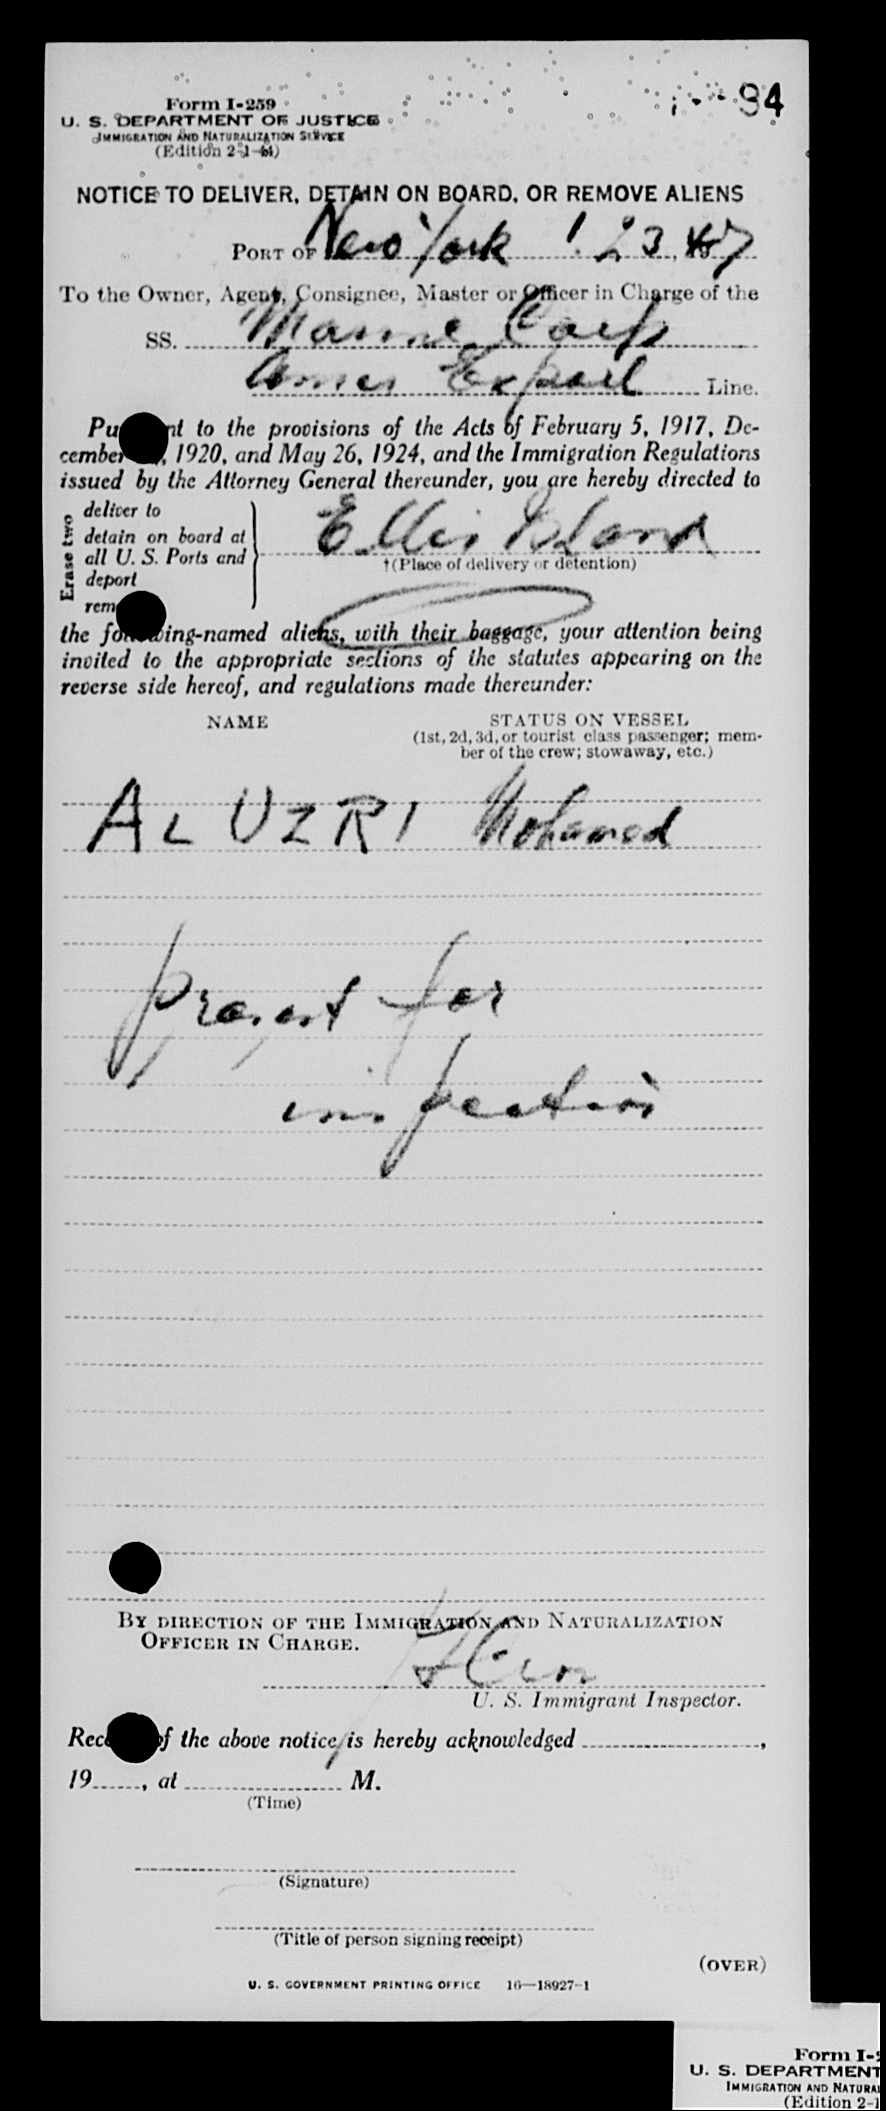 94
Form I-259
U. S. DEPARTMENT OF JUSTICE
IMMIGRATION AND NATURALIZATION SERVICE
(Edition 2-1-44)
NOTICE TO DELIVER, DETAIN ON BOARD, OR REMOVE ALIENS
PORT OF New York 1 23, 47
To the Owner, Agent, Consignee, Master or Officer in Charge of the
SS. Marine Carp
Amer Export Line.
Pu nt to the provisions of the Acts of February 5, 1917, De-
cember , 1920, and May 26, 1924, and the Immigration Regulations
issued by the Attorney General thereunder, you are hereby directed to
Erase two
deliver to
detain on board at
all U. S. Ports and
deport
rem
Ellis Island
†(Place of delivery or detention)
the following-named aliens, with their baggage, your attention being
invited to the appropriate sections of the statutes appearing on the
reverse side hereof, and regulations made thereunder:
NAME STATUS ON VESSEL
(1st, 2d, 3d, or tourist class passenger; mem-
ber of the crew; stowaway, etc.)
AL UZRI Mohamed
present for
inspection
BY DIRECTION OF THE IMMIGRATION AND NATURALIZATION
OFFICER IN CHARGE.
U. S. Immigrant Inspector.
Rec of the above notice is hereby acknowledged ,
19 , at M.
(Time)
(Signature)
(Title of person signing receipt)
(OVER)
U. S. GOVERNMENT PRINTING OFFICE 16—18927-1
Form I-
U. S. DEPARTMENT
IMMIGRATION AND NATURA
(Edition 2-1